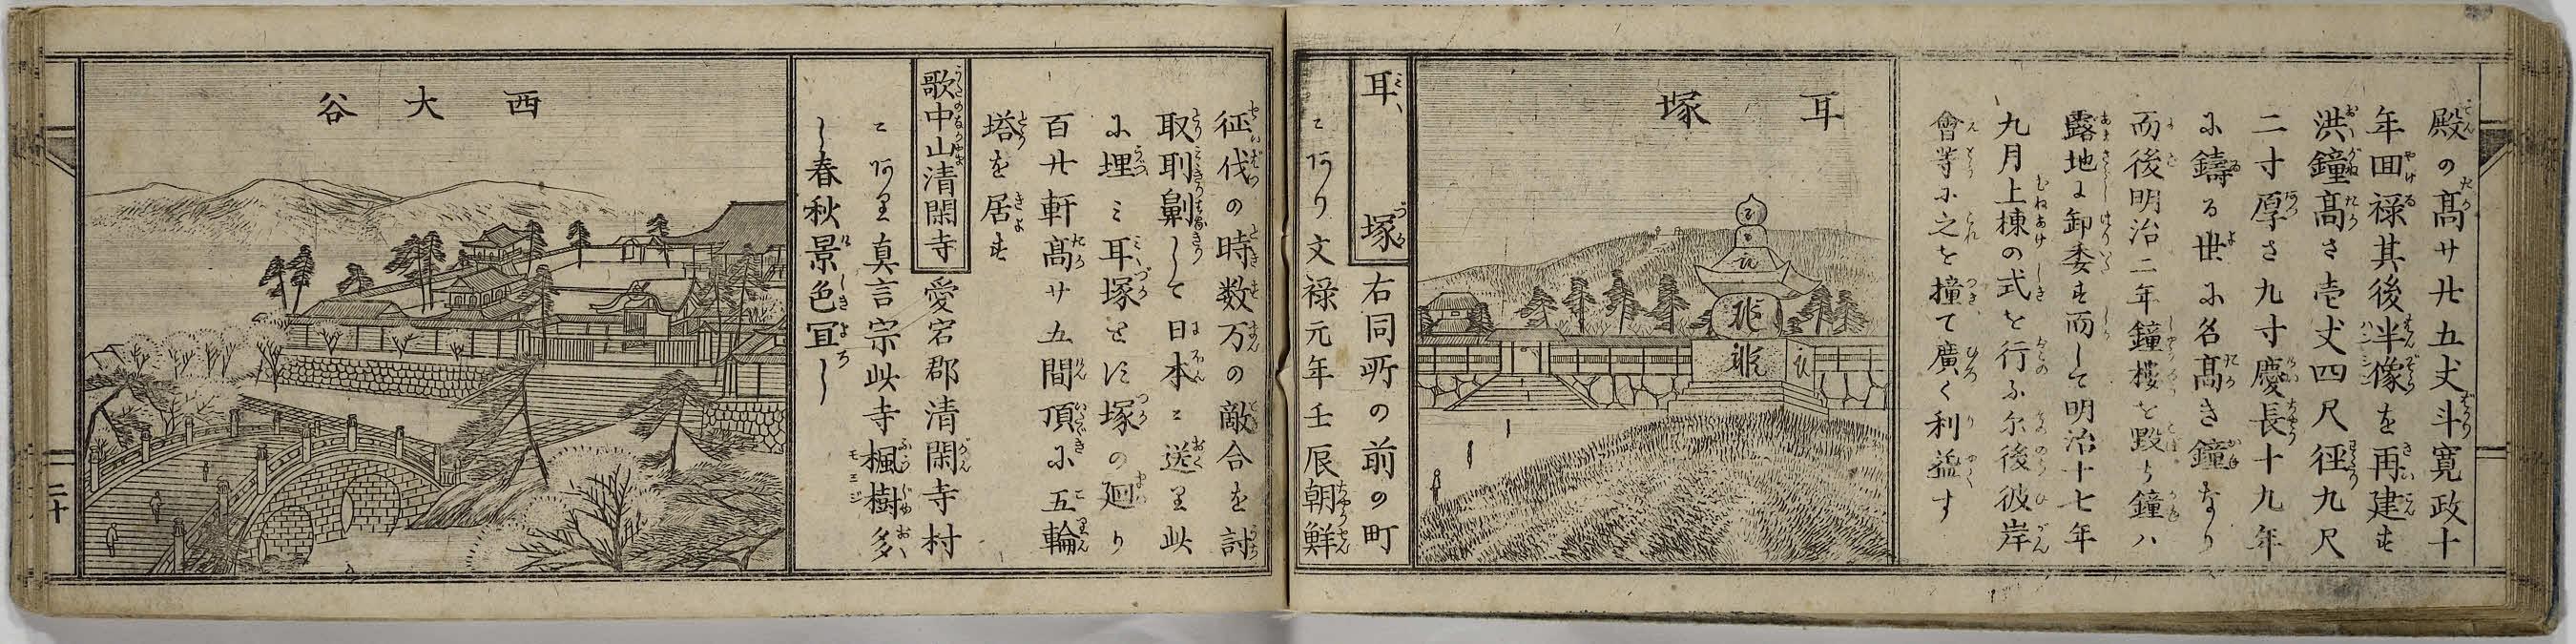 殿の高サ廿五丈斗寛政十
年回禄其後半像を再建す
洪鐘高さ壱丈四尺径九尺
二寸厚さ九寸慶長十九年
に鋳る世に名高き鐘なり
而後明治二年鐘楼を毀ち鐘ハ
露地に卸委す而して明治十七年
九月上棟の式を行ふ尓後彼岸
會等に之を撞て廣く利益す
耳塚
耳塚 右同所の前の町
に阿り文禄元年壬辰朝鮮
征伐の時数万の敵合を討
取刵劓して日本に送里此
に埋ミ耳塚と云塚の廻り
百廿軒高サ五間頂に五輪
塔を居す
歌中山清閑寺 愛宕郡清閑寺村
に阿里真言宗此寺楓樹多
し春秋景色冝し
西大谷
二十